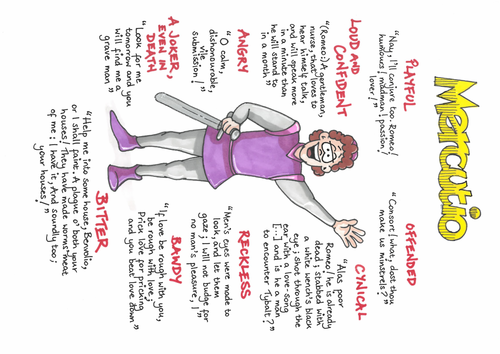 Mercutio
PLAYFUL
"Nay, I'll conjure too. Romeo!
humours! madman! passion!
lover!"
LOUD AND
CONFIDENT
"(Romeo:) A gentleman,
nurse, that loves to
hear himself talk,
and will speak more
in a minute than
he will stand to
in a month"
ANGRY
"O calm,
dishonourable,
vile
submission!"
A JOKER,
EVEN IN
DEATH
"Look for me
tomorrow and you
will find me a
grave man"
OFFENDED
"Consort! what, dost thou
make us minstrels?"
CYNICAL
"Alas poor
Romeo! he is already
dead; stabbed with
a white wench's black
eye; shot through the
ear with a love-song
[...] and is he a man
to encounter Tybalt?"
RECKLESS
"Men's eyes were made to
look, and let them
gaze; I will not budge for
no man's pleasure, I"
BAWDY
"If love be rough with you,
be rough with love;
Prick love for pricking
and you beat love down"
BITTER
"Help me into some house, Benvolio,
or I shall faint. A plague o' both your
houses! They have made worms' meat
of me: I have it, And soundly too;
your houses!"